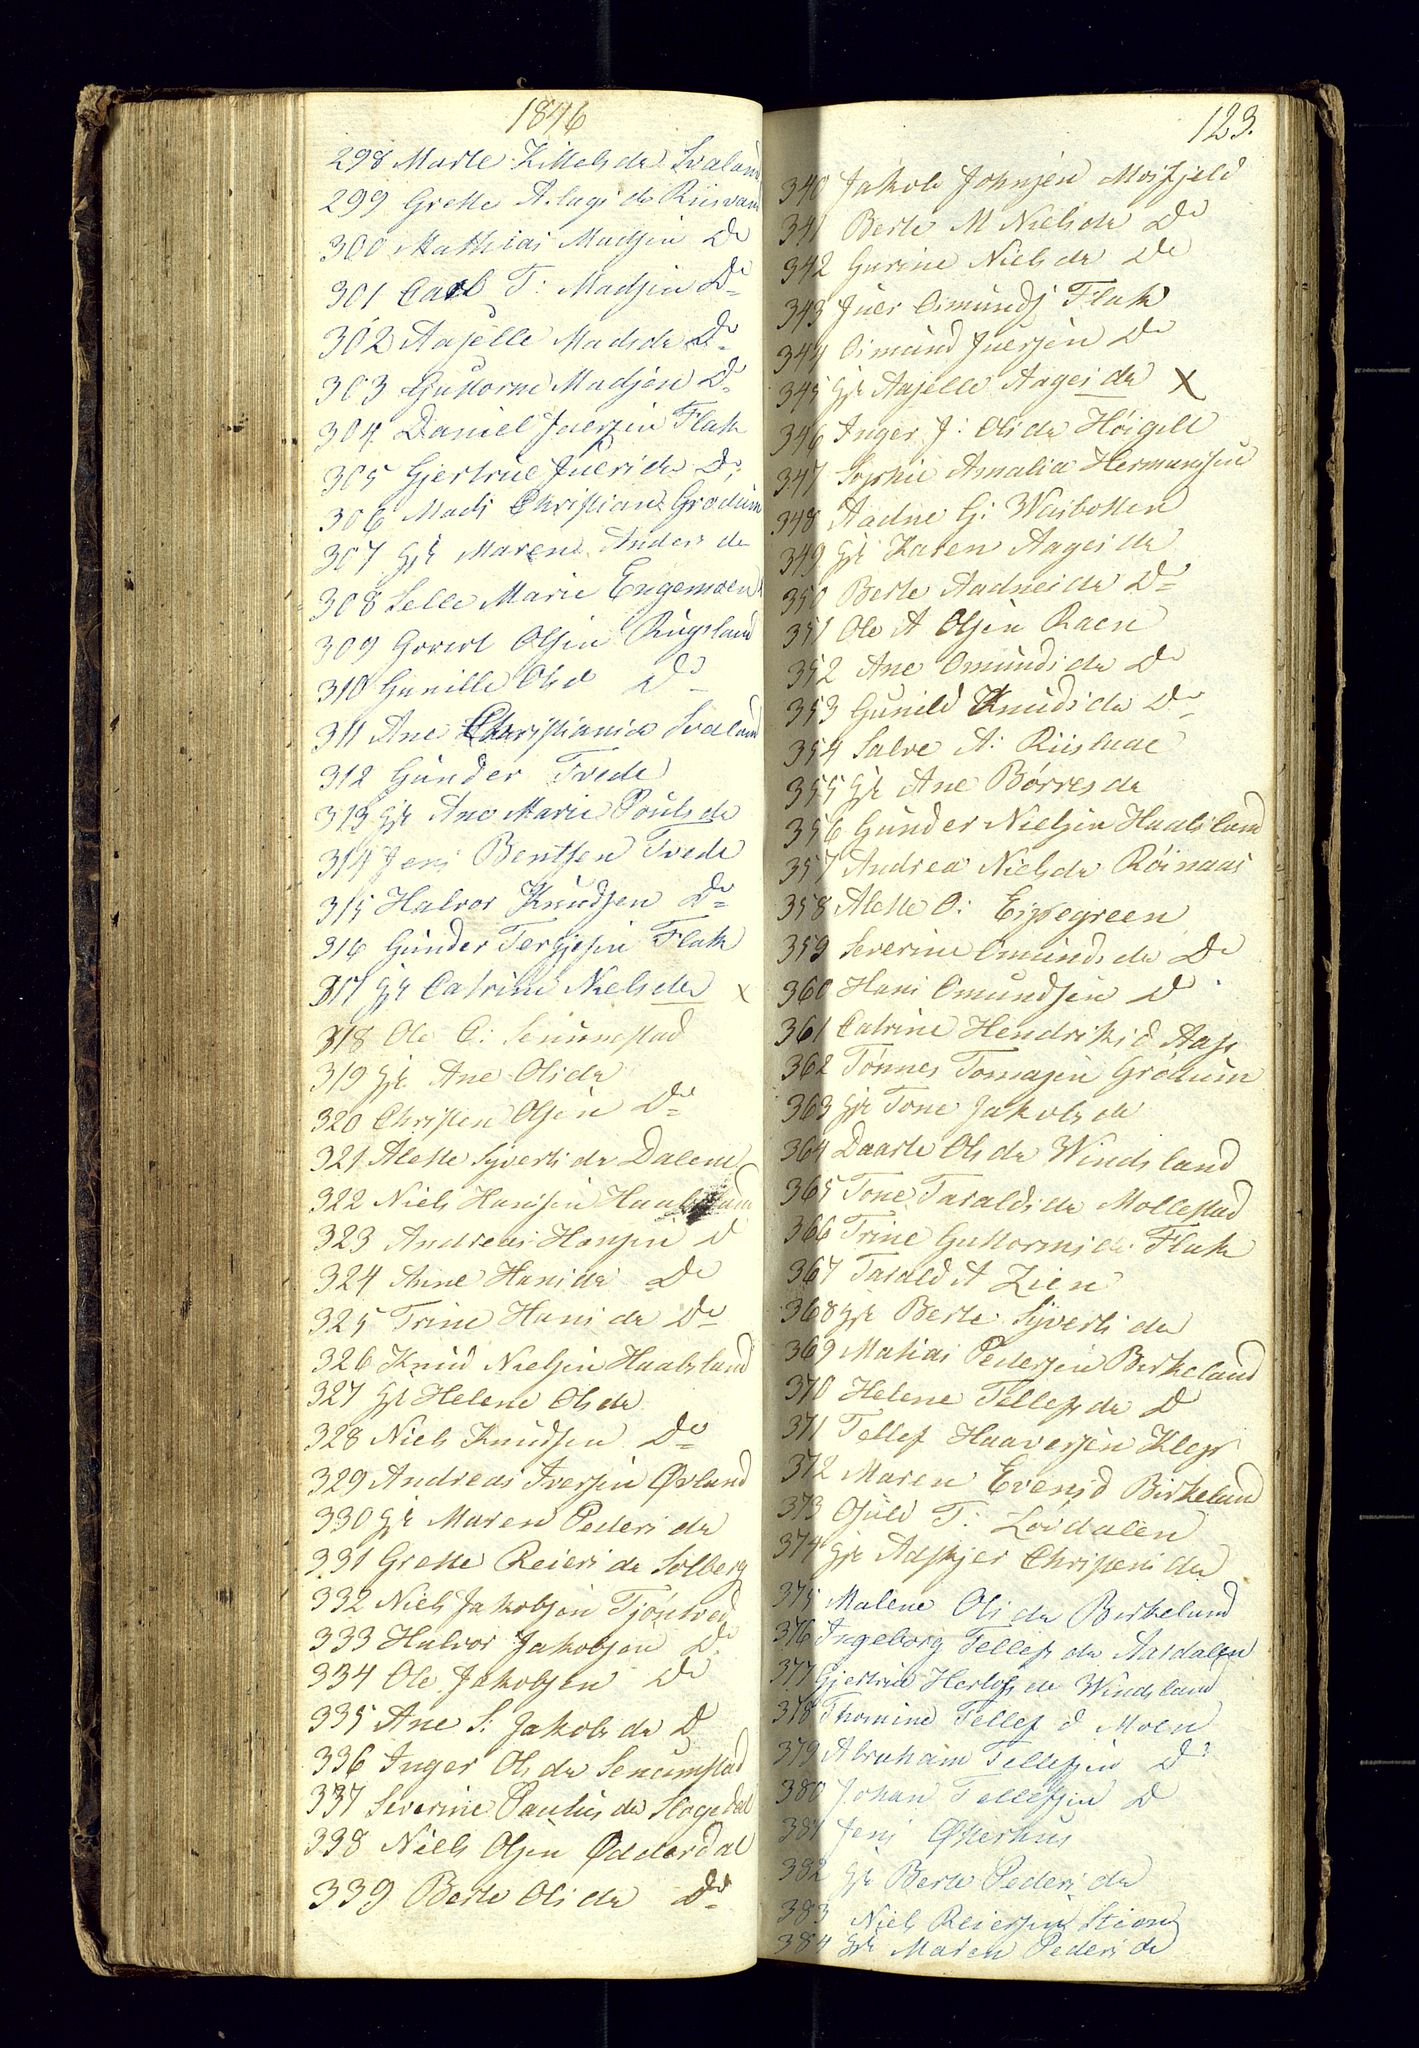 1846
298 Marte Kittelsda Svaland
299 Grethe Aslags da Riisvand
300 Mathias Madsen Do
301 Carl T: Madsen Do
302 Aasille Madsda Do
303 Guttorm Madsen Do
304 Daniel Iversen Flak
305 Gjertrue Iversda Do
306 Mads Christians Grødum
307 Gjk Maren Anders da
308 Selle Marie Engemoen
309 Govert Olsen Rugsland
310 Gunille Ols d Do
311 Ane Christians da Svaland
312 Gunder Tvede
313 Gjk Ane Marie Pouls da
314 Jens Bentsen Tvede
315 Halvor Knudsen Do
316 Gunder Tergjesen Flak
317 Gjk Catrine Nielsda x
318 Ole C: Senumstad
319 Gjk Ane Olsda
320 Christen Olsen Do
321 Alette Syverts da Dalene
322 Niels Hansen Haabsland
323 Andreas Hansen D
324 Anne Hansda Do
325 Trine Hans da Do
326 Knud Nielsen Haabsland
327 Gjk Helene Olsda
328 Niels Knudsen Do
329 Andreas Iversen Øvland
330 Gjk Maren Peders da
331 Grethe Reiers da Solberg
332 Niels Jakobsen Tjøntved
333 Halvor Jakobsen Do
334 Ole Jakobsen Do
335 Ane S: Jakobs da D
336 Inger Ols da Senumstad
337 Severine Paulus da Slogedal
338 Niels Olsen Oddersdal
339 Berte Ols da Do
123.
340 Jakob Johnsen Mosfjeld
341 Berte M Nielsda Do
342 Gurine Niels da Do
343 Iver Osmunds Flak
344 Osmund Iversen Do
345 Gjk Aasille Aagesda x
346 Inger J: Olsda Høigilt
347 Sophie Amalia Hermansen
348 Aadne G: Waibotten
349 Gjk Karen Aages da
350 Berte Aadnes da Do
351 Ole A Olsen Raen
352 Ane Omunds da Do
353 Gunild Knuds da Do
354 Salve A:
355 Gjk Ane Børres da
356 Gunder Nielsen Haabsland
357 Andrea Nielsda Røinaas
358 Alette O: Eppegreen
359 Severine Omunds da Do
360 Hans Omundsen D
361 Catrine Hendriks d Aas
362 Tønnes Tomasen Grødum
363 Gjk Tone Jakobs da
364 Daarte Ols da Windsland
365 Tone Taralds da Mollestad
366 Trine Guttorms da Flak
367 Tarald A Lien
368 Gjk Berte Syverts da
369 Matias Pedersen Birkeland
370 Helene Tellefs da D
371 Tellef Haaversen Klep
372 Maren Evens d Birkeland
373 Ojuld T: Løvdalen
374 Gjk Adskjer Christens da
375 Malene Ols da Birkeland
376 Ingeborg Tellefs da Aasdalen
377 Gjertrud Herlofs da Windsland
378 Thomine Tellef d Moen
379 Abraham Tellefsen D
380 Johan Tellefsen D
381 Jens Østerhus
382 Gjk Berte Peders da
383 Niels Reiersen Stiong
384 Gjk Maren Peders da